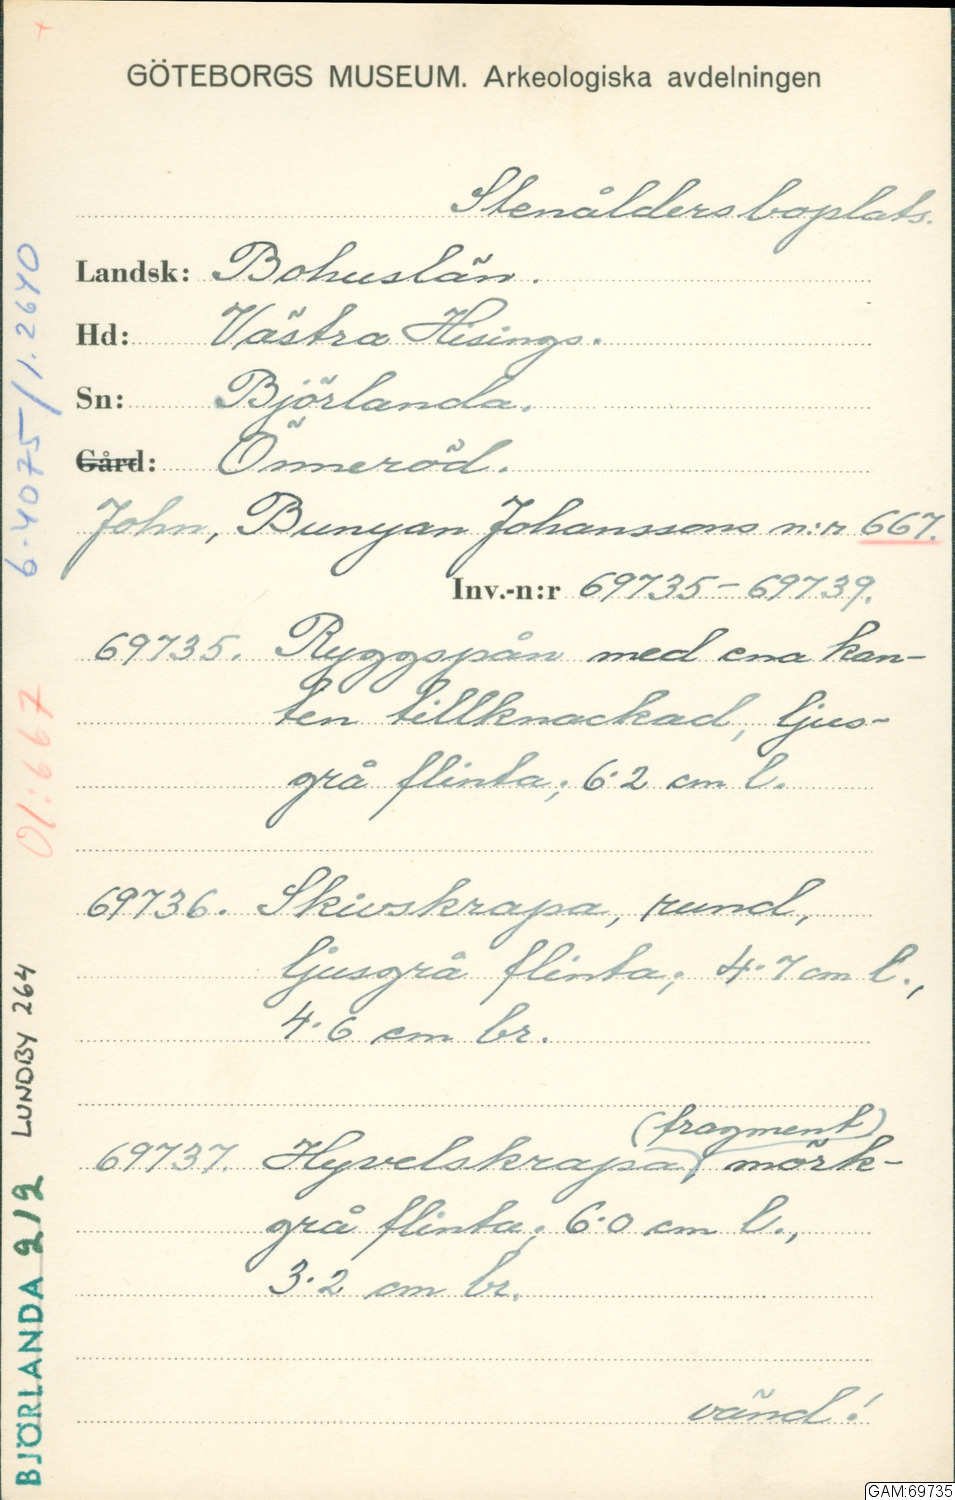 GÖTEBORGS MUSEUM. Arkeologiska avdelningen
Stenåldersboplats.
Landsk: Bohuslän.
Hd: Västra Hisings.
Sn: Björlanda.
Gård: Önneröd.
John, Bunyan Johanssons n:r 667.
Inv.-n:r 69735-69739.
69735. Ryggspån med ena kan-
ten tillknackad, ljus-
grå flinta; 6.2 cm l.
69736. Skivskrapa, rund,
ljusgrå flinta; 4.7 cm l.,
4.6 cm br.
69737. Hyvelskrapa (fragment), mörk-
grå flinta; 6.0 cm l.,
3.2 cm br.
vänd!
6.4075/1.2640
01:667
LUNDBY 264
BJÖRLANDA 212
GAM:69735